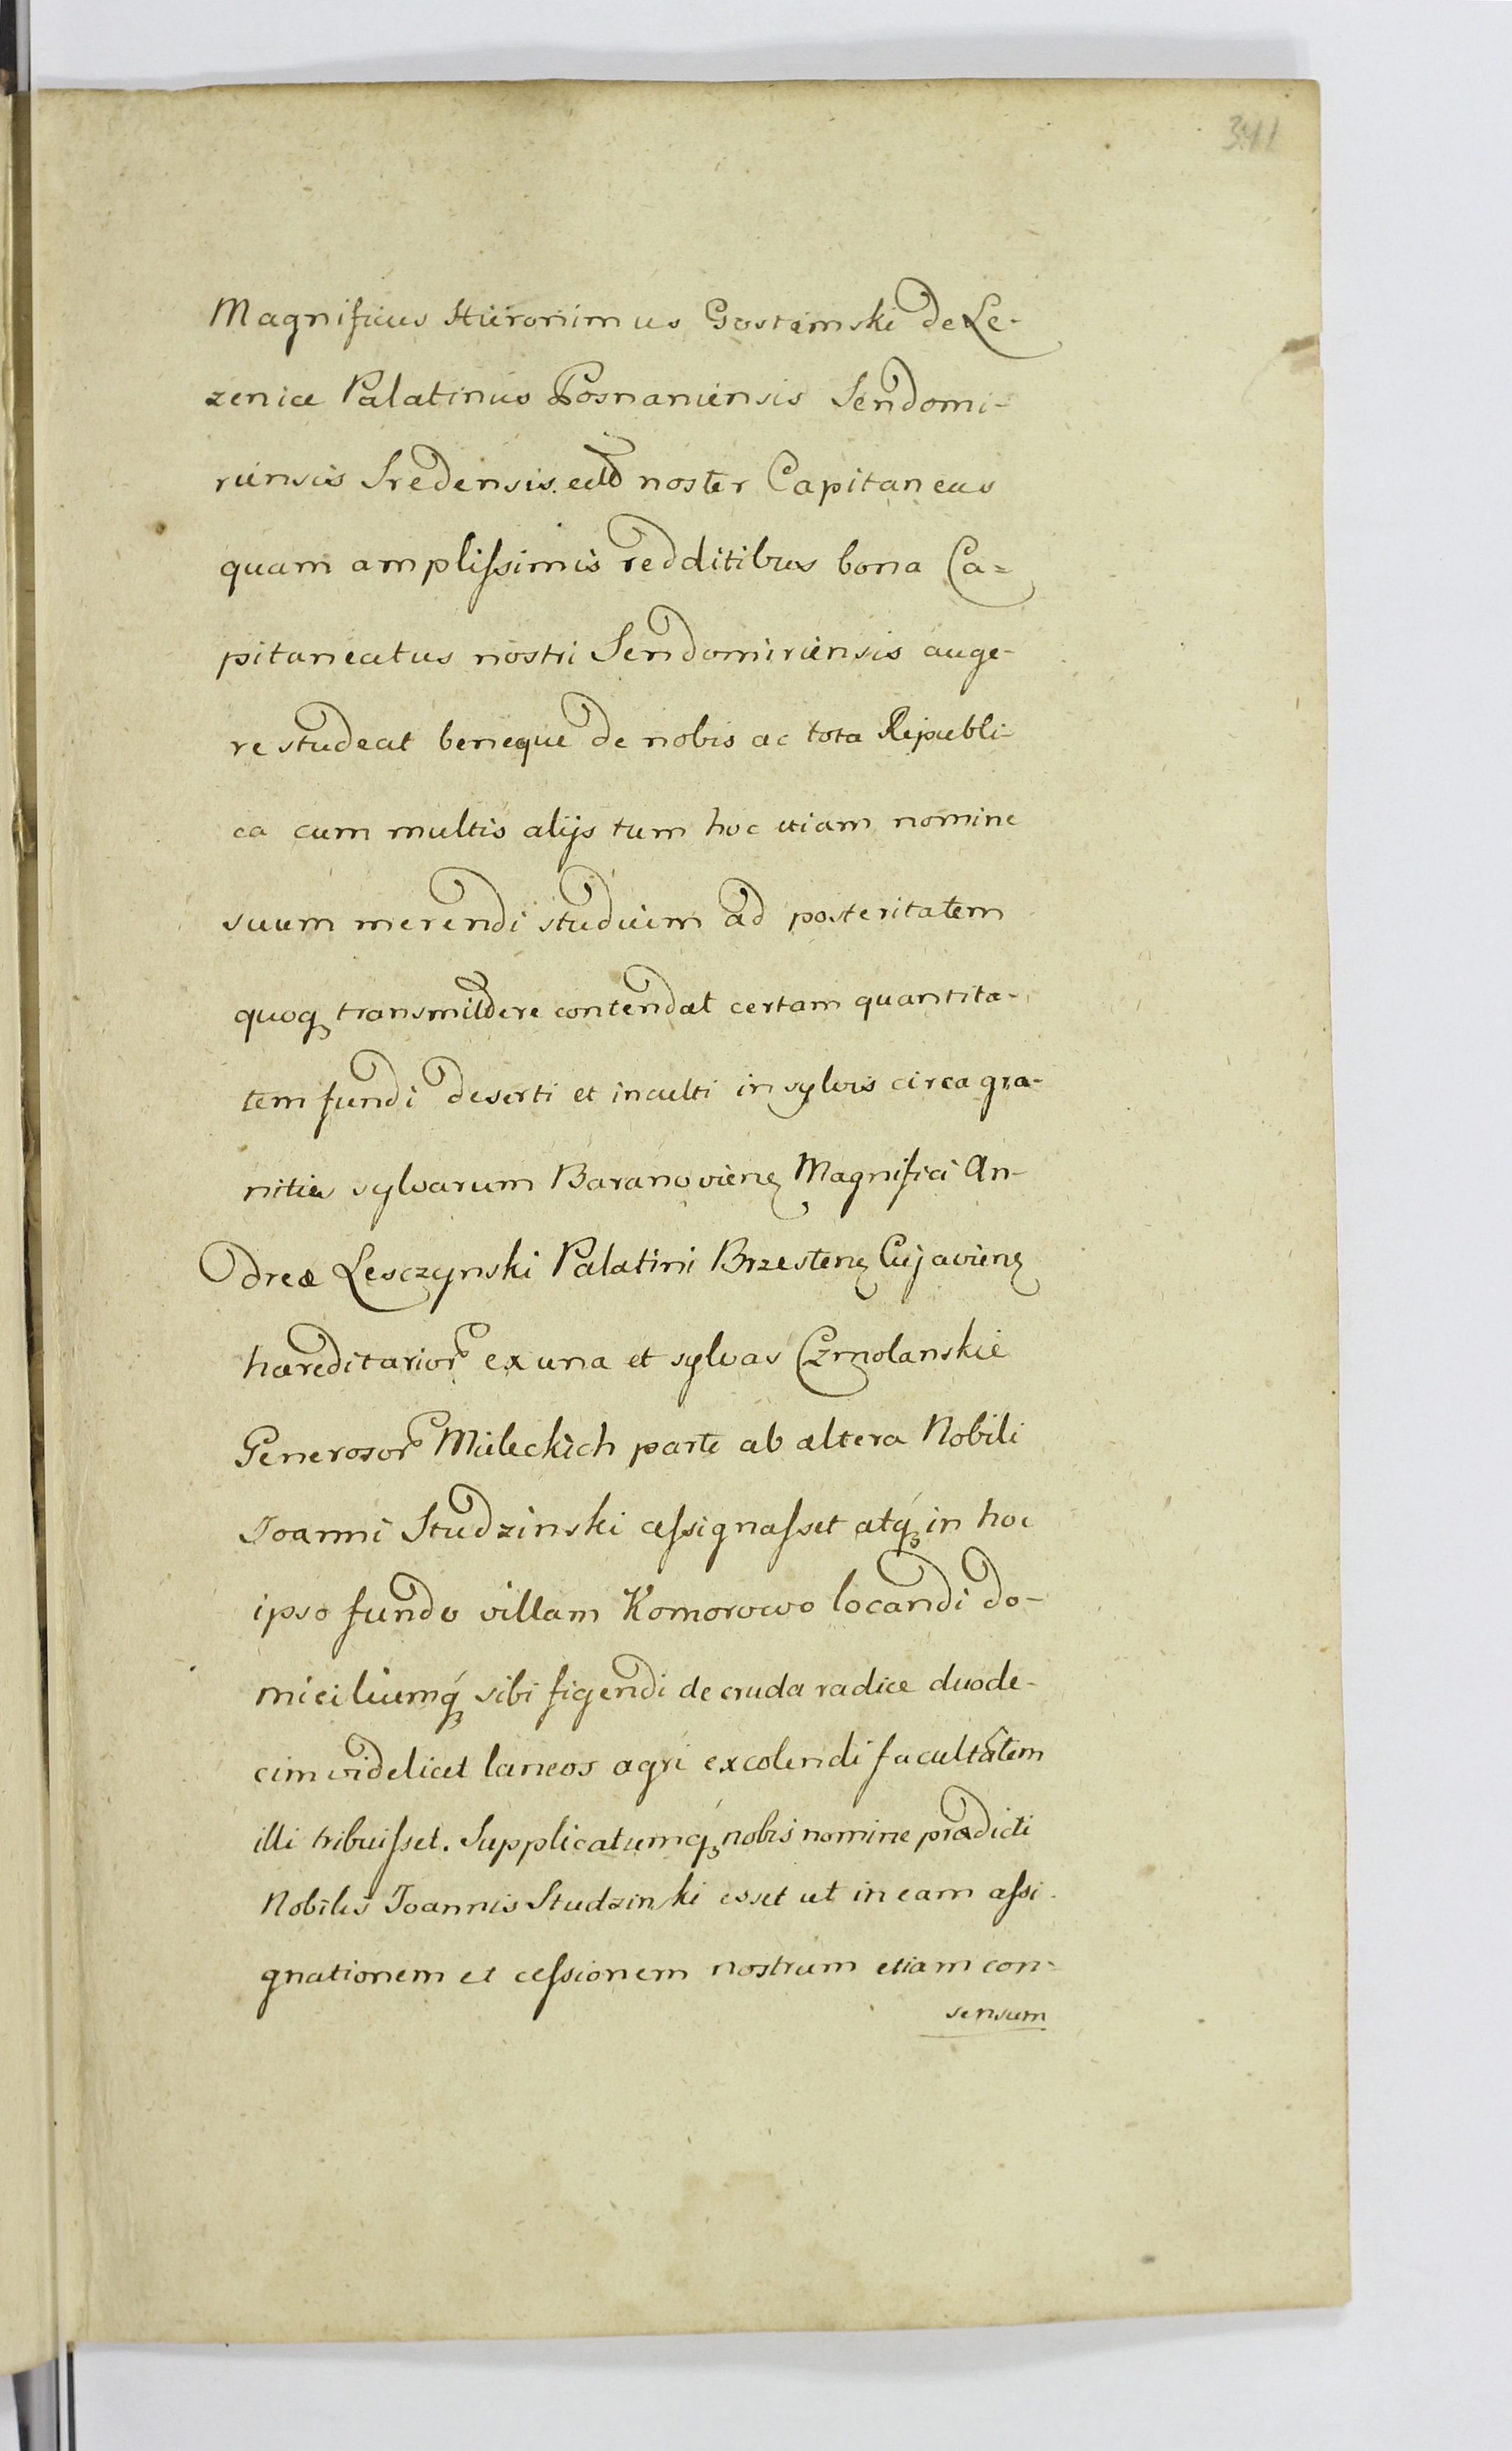 341
Magnificus Hieronimus Gostimski de Le-
zenice Palatinus Posnaniensis Sendomi-
riensis Sredensis. noster Capitaneus
quam amplissimis redditibus bona Ca=
pitaneatus nostri Sendomiriensis auge-
re studeat beneque de nobis ac tota Republi-
ca cum multis alijs tum hoc etiam nomine
suum merendi studium ad posteritatem
quoq₃ transmittere contendat certam quantita-
tem fundi deserti et inculti in sylvis circa gra-
nities sylvarum Baranovien̄ Magnifici An-
dreæ Lesczynski Palatini Brzesten̄ Cujavien̄
hæreditarior̄ ex una et sylvas Czrnolanskie
Generosor̄ Mieleckich parte ab altera Nobili
Joanni Studzinski assignasset atq₃ in hoc
ipso fundo villam Komorowo locandi do-
miciliumq₃ sibi figendi de cruda radice duode-
cim videlicet laneos agri excolendi facultatem
illi tribuisset. Supplicatumq₃ nobis nomine prædicti
Nobilis Joannis Studzinski esset ut in eam assi-
gnationem et cessionem nostrum etiam con-
sensum